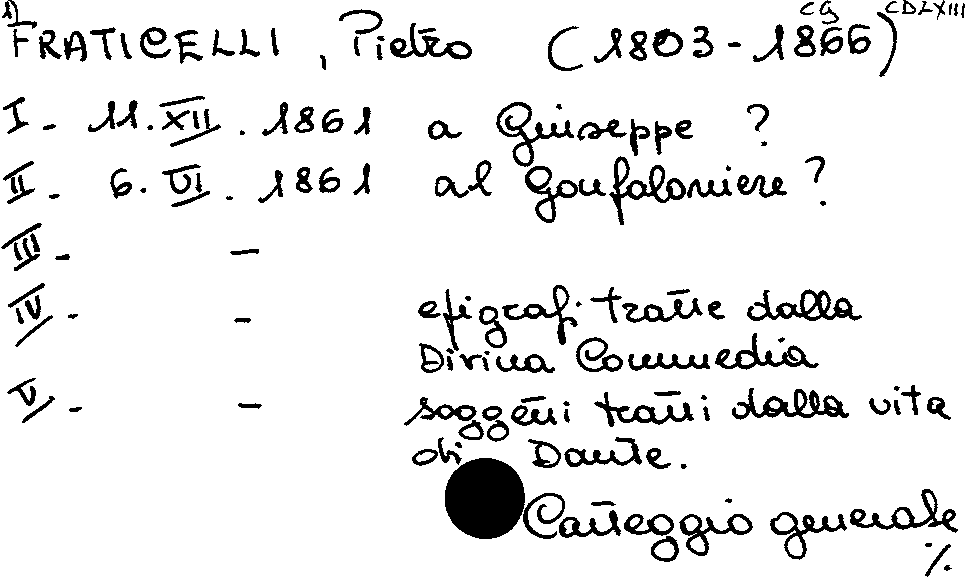 1) CG CDLXIII
FRATICELLI, Pietro (1803-1866)
I - 11.XII.1861 a Giuseppe ?
II - 6.VI.1861 al Gonfaloniere ?
III - -
IV - - epigrafi tratte dalla
Divina Commedia
V - - soggetti tratti dalla vita
di Dante.
Carteggio generale
%